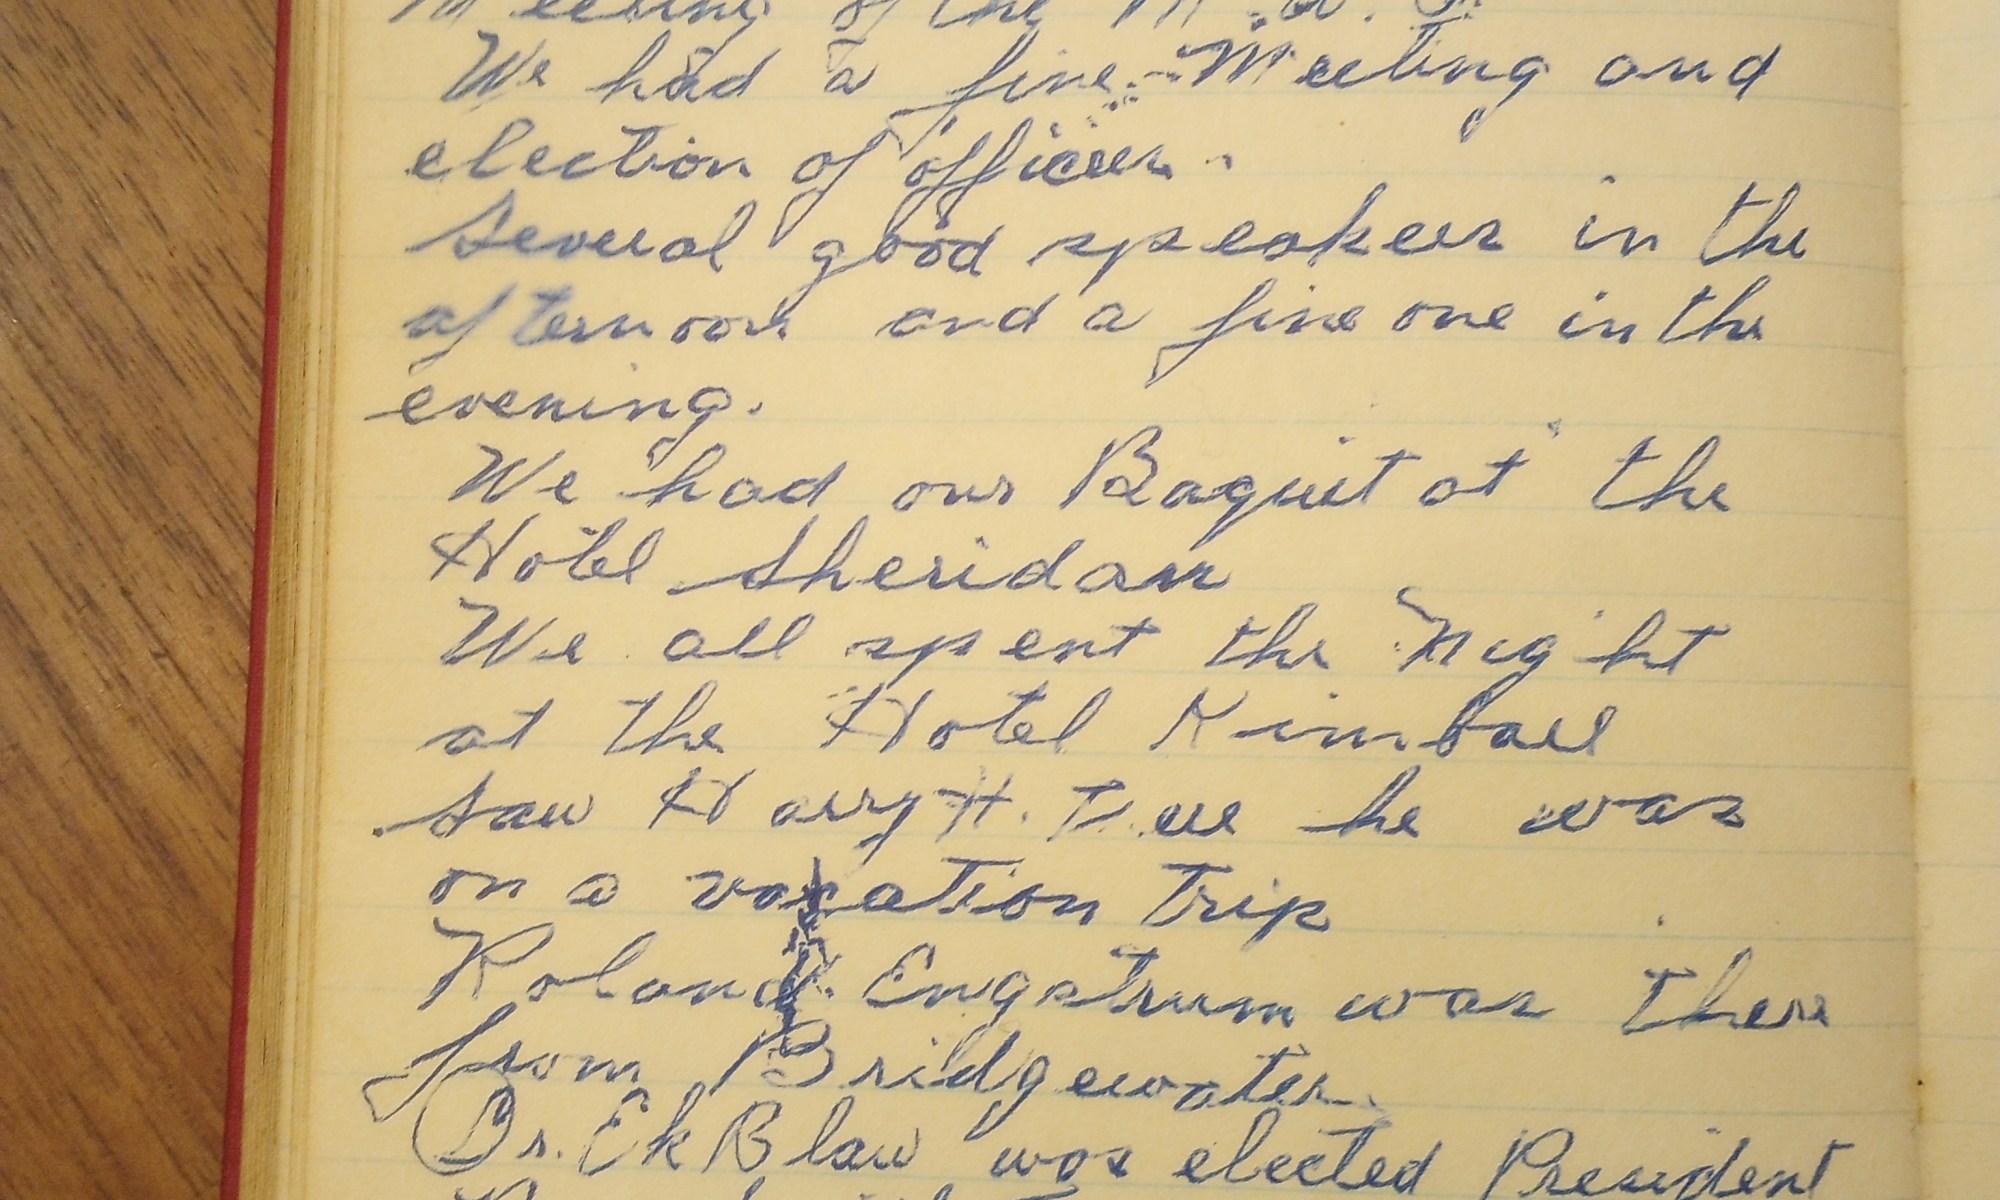 Meeting of the
We had a fine Meeting and
election of officers.
Several good speakers in the
afternoon and a fine one in the
evening.
We had our Baquet at the
Hotel Sheridan
We all spent the Night
at the Hotel Kimball
Saw Harry H. he was
on a vacation trip
Roland Engstrum was there
from Bridgewater.
Dr. EkBlaw was elected President